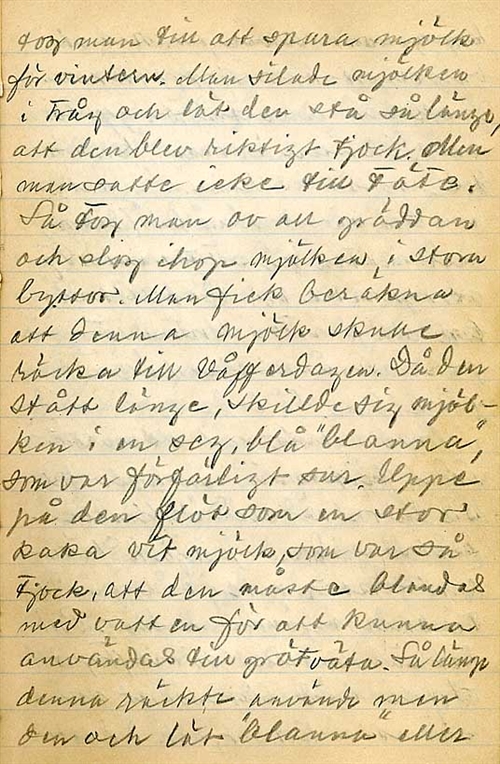 tog man till att spara mjölk
för vintern. Man silade mjölken
i Tråg och lät den stå så länge,
att den blev riktigt tjock. Men
man satte icke till täte.
Så tog man av all gräddan
och slog ihop mjölken i stora
byttor. Man fick beräkna
att denna mjölk skulle
räcka till Våfferdagen. Då den
stått länge, skillde sig mjöl-
ken i en seg, blå "blanna",
som var förfärligt sur. Uppe
på den flöt som en stor
kaka vit mjölk, som var så
tjock, att den måste blandas
med vatten för att kunna
användas till grötväta. Så länge
denna räckte använde man
den och lät "blanna" eller